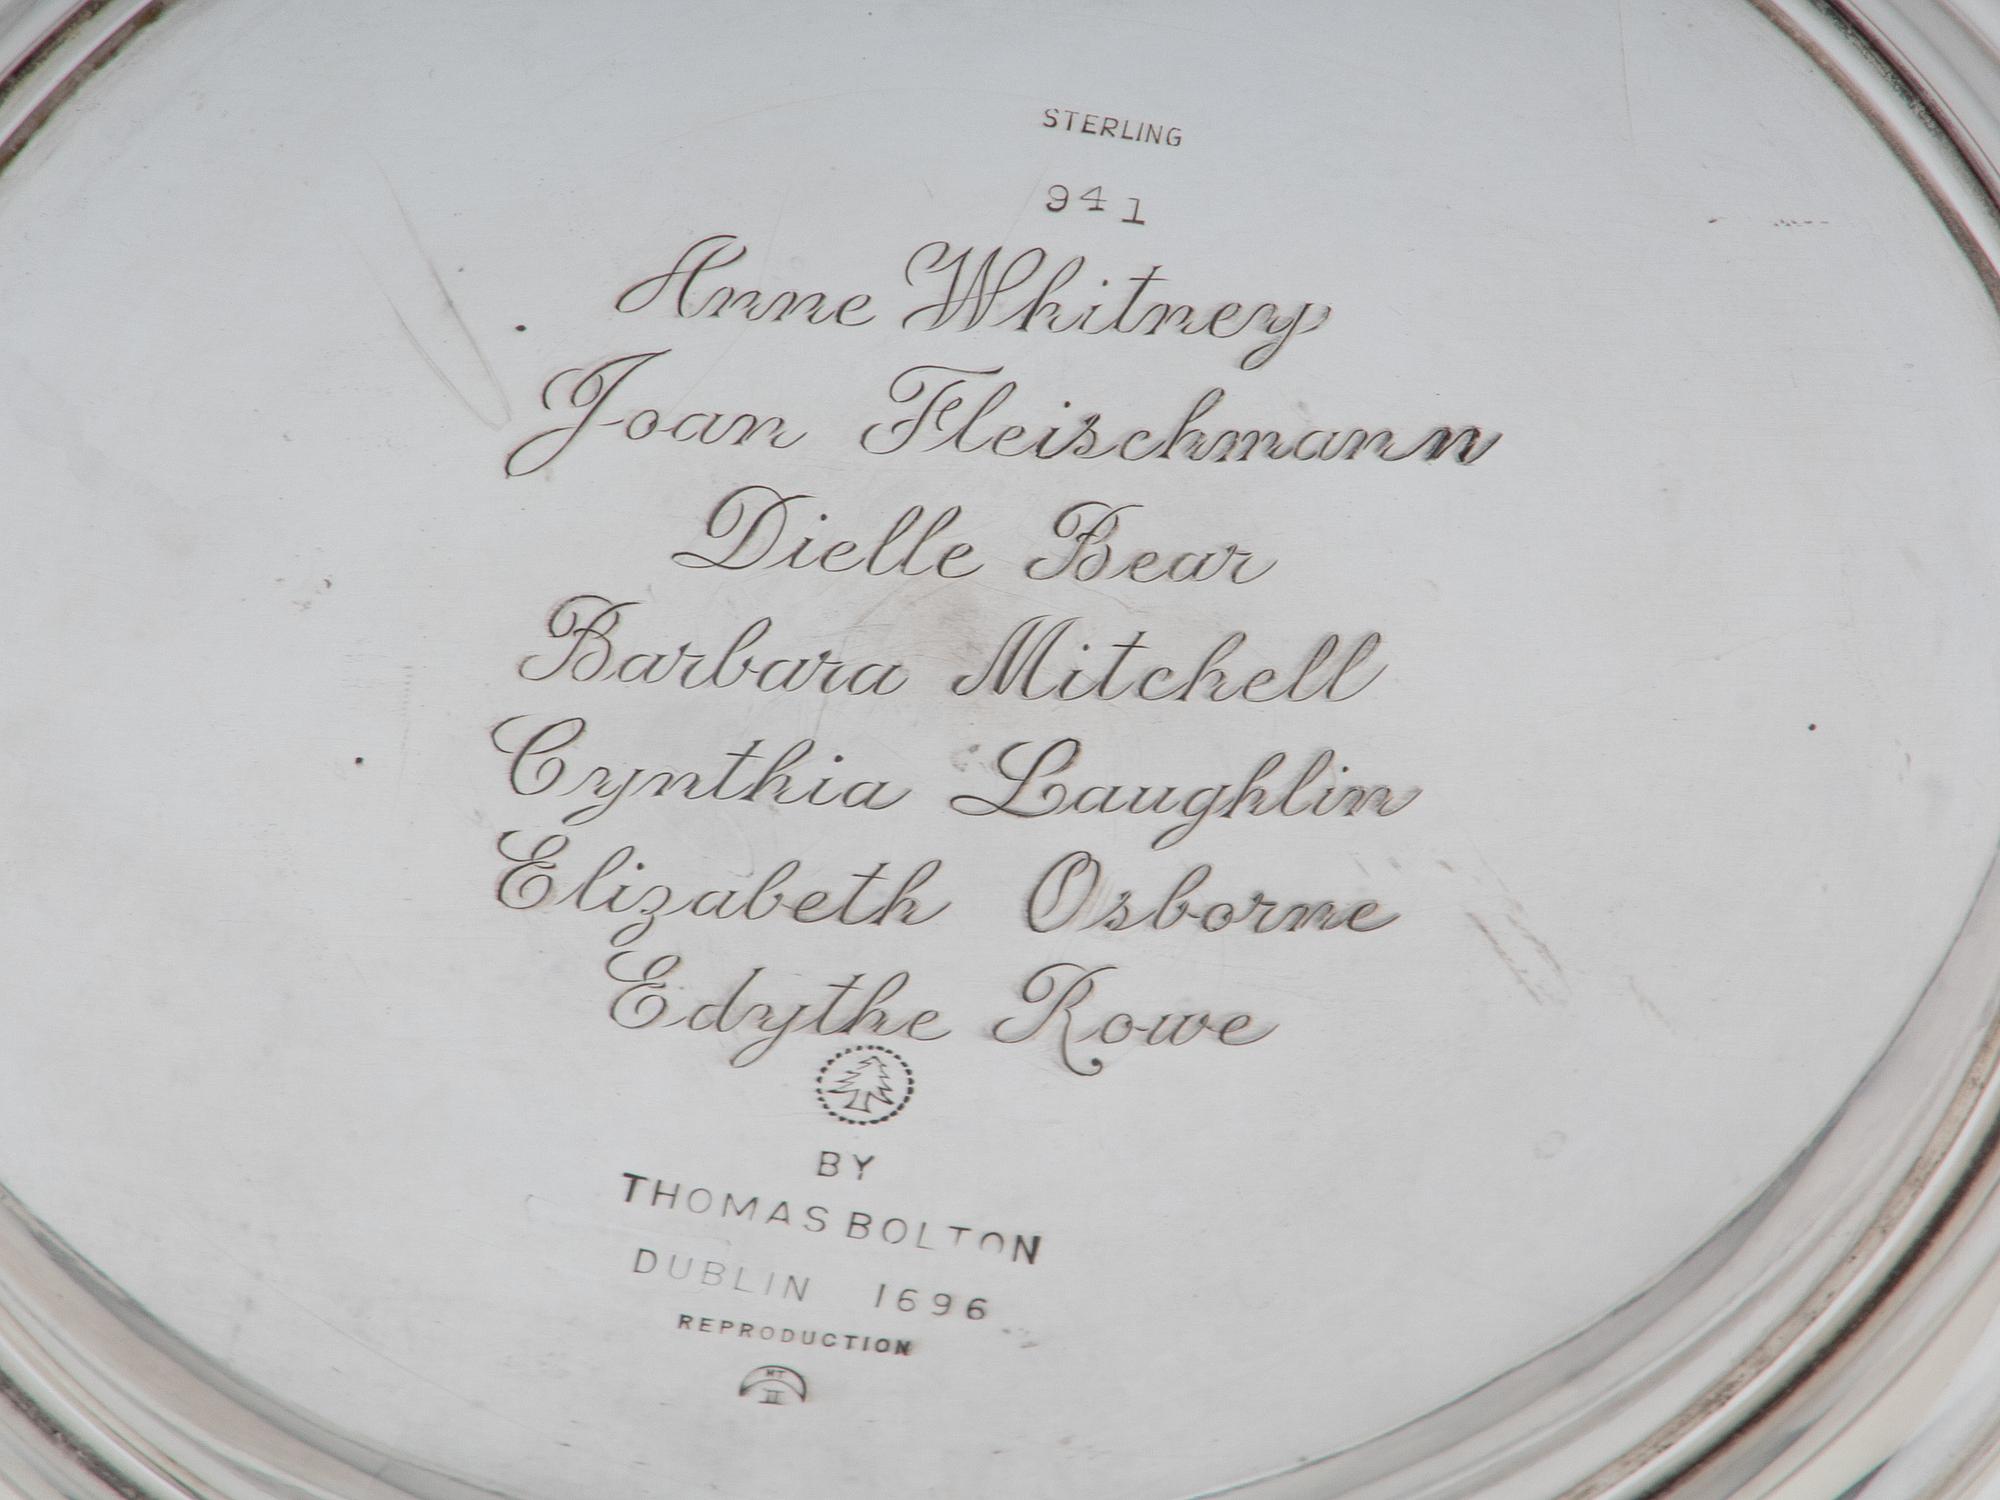 STERLING
941
Anne Whitney
Joan Fleischmann
Dielle Bear
Barbara Mitchell
Cynthia Laughlin
Elizabeth Osborne
Edythe Rowe
BY
THOMAS BOLTON
DUBLIN 1696
REPRODUCTION
MT
II